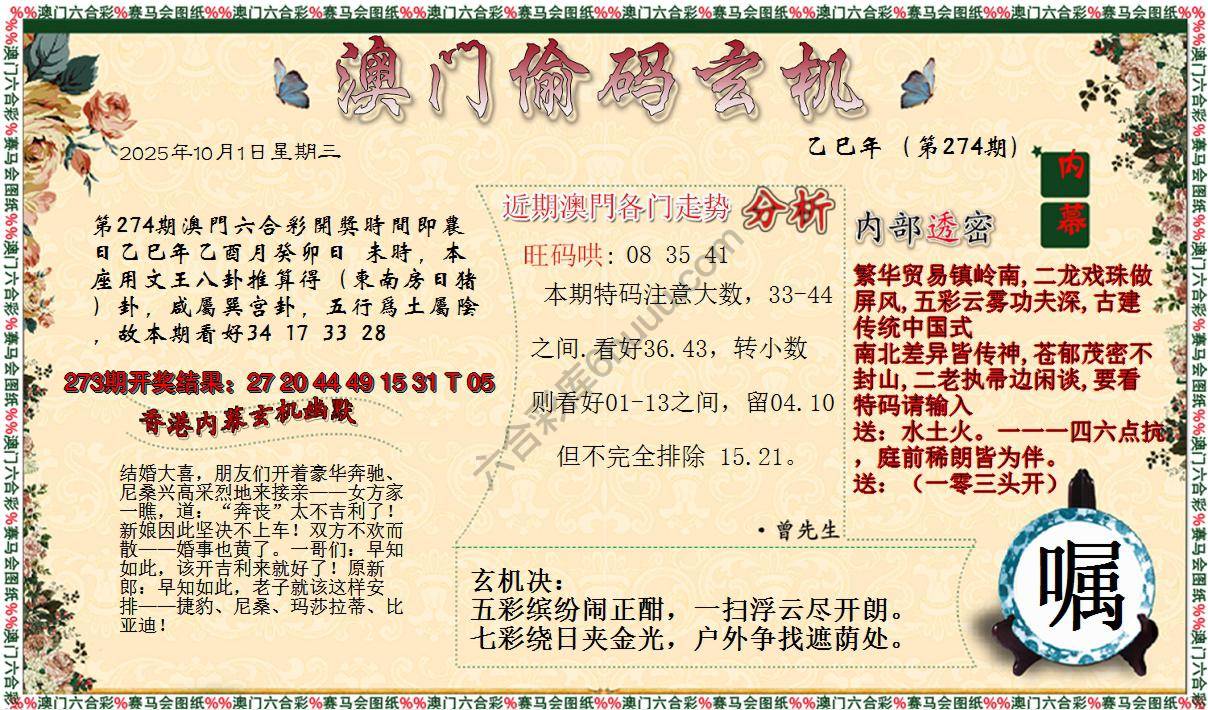 %%澳门六合彩%赛马会图纸%%澳门六合彩%赛马会图纸%%澳门六合彩%赛马会图纸%%澳门六合彩%赛马会图纸%%澳门六合彩%赛马会图纸%%澳门六合彩%赛马会图纸%%
澳门偷码玄机
2025年10月1日星期三
乙巳年（第274期）
内幕
第274期澳門六合彩開獎時間即農
日乙巳年乙酉月癸卯日 未時，本
座用文王八卦推算得（東南房日猪
）卦，咸屬巽宫卦，五行爲土屬陰
，故本期看好34 17 33 28
273期开奖结果：27 20 44 49 15 31 T 05
香港内幕玄机幽默
结婚大喜，朋友们开着豪华奔驰、
尼桑兴高采烈地来接亲——女方家
一瞧，道：“奔丧”太不吉利了！
新娘因此坚决不上车！双方不欢而
散——婚事也黄了。一哥们：早知
如此，该开吉利来就好了！原新
郎：早知如此，老子就该这样安
排——捷豹、尼桑、玛莎拉蒂、比
亚迪！
近期澳門各门走势 分析
旺码哄：08 35 41
本期特码注意大数，33-44
之间.看好36.43，转小数
则看好01-13之间，留04.10
但不完全排除 15.21。
·曾先生
内部透密
繁华贸易镇岭南,二龙戏珠做
屏风,五彩云雾功夫深,古建
传统中国式
南北差异皆传神,苍郁茂密不
封山,二老执帚边闲谈,要看
特码请输入
送：水土火。一一一四六点抗
，庭前稀朗皆为伴。
送：（一零三头开）
玄机决：
五彩缤纷闹正酣，一扫浮云尽开朗。
七彩绕日夹金光，户外争找遮荫处。
嘱
%%澳门六合彩%赛马会图纸%%澳门六合彩%赛马会图纸%%澳门六合彩%赛马会图纸%%澳门六合彩%赛马会图纸%%澳门六合彩%赛马会图纸%%澳门六合彩%赛马会图纸%%